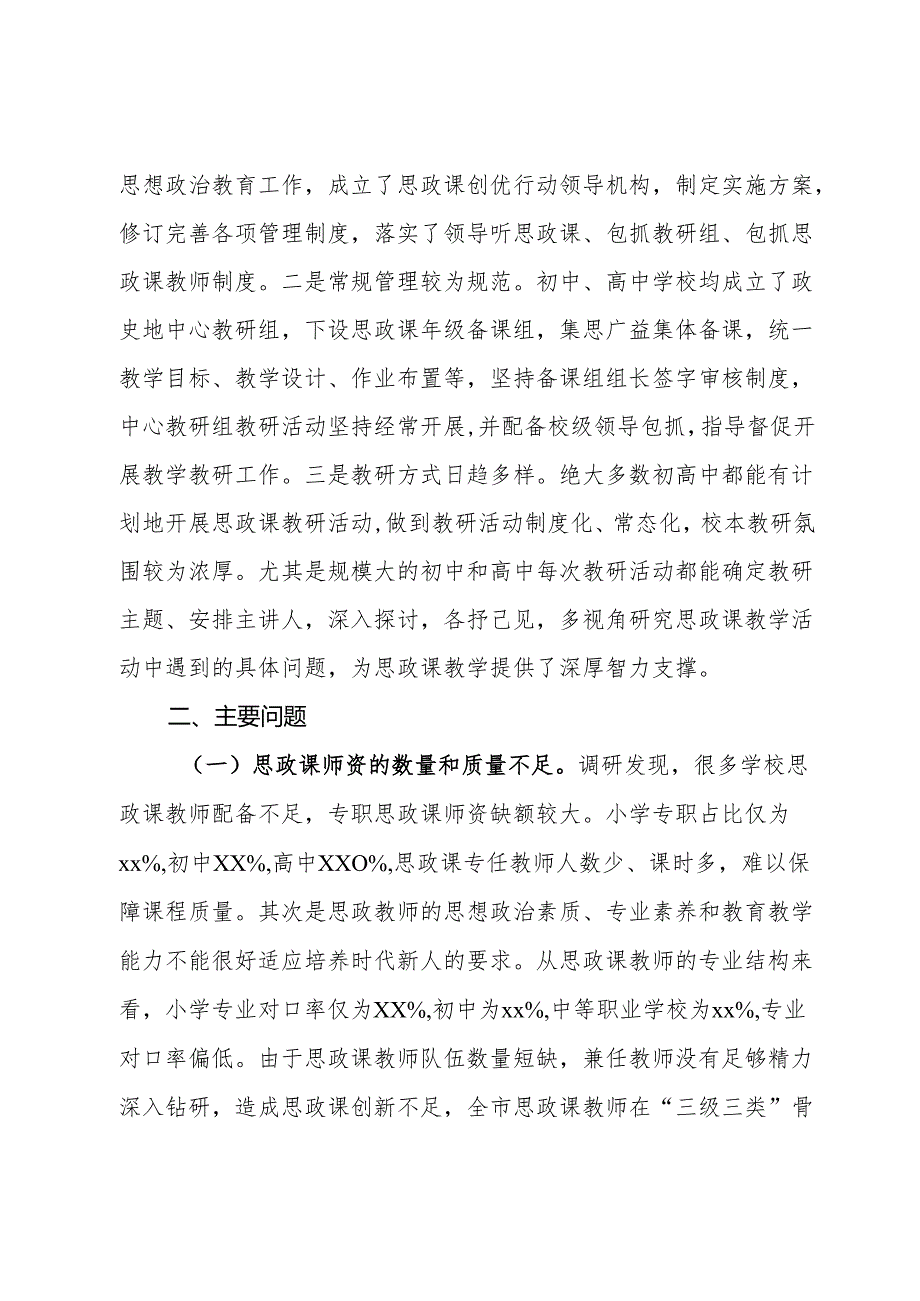 思想政治教育工作，成立了思政课创优行动领导机构，制定实施方案，
修订完善各项管理制度，落实了领导听思政课、包抓教研组、包抓思
政课教师制度。二是常规管理较为规范。初中、高中学校均成立了政
史地中心教研组，下设思政课年级备课组，集思广益集体备课，统一
教学目标、教学设计、作业布置等，坚持备课组组长签字审核制度，
中心教研组教研活动坚持经常开展,并配备校级领导包抓,指导督促开
展教学教研工作。三是教研方式日趋多样。绝大多数初高中都能有计
划地开展思政课教研活动,做到教研活动制度化、常态化，校本教研氛
围较为浓厚。尤其是规模大的初中和高中每次教研活动都能确定教研
主题、安排主讲人，深入探讨，各抒己见，多视角研究思政课教学活
动中遇到的具体问题，为思政课教学提供了深厚智力支撑。
二、主要问题
（一）思政课师资的数量和质量不足。调研发现，很多学校思
政课教师配备不足，专职思政课师资缺额较大。小学专职占比仅为
xx%,初中XX%,高中XXO%,思政课专任教师人数少、课时多，难以保
障课程质量。其次是思政教师的思想政治素质、专业素养和教育教学
能力不能很好适应培养时代新人的要求。从思政课教师的专业结构来
看，小学专业对口率仅为XX%,初中为xx%,中等职业学校为xx%,专业
对口率偏低。由于思政课教师队伍数量短缺，兼任教师没有足够精力
深入钻研，造成思政课创新不足，全市思政课教师在“三级三类”骨